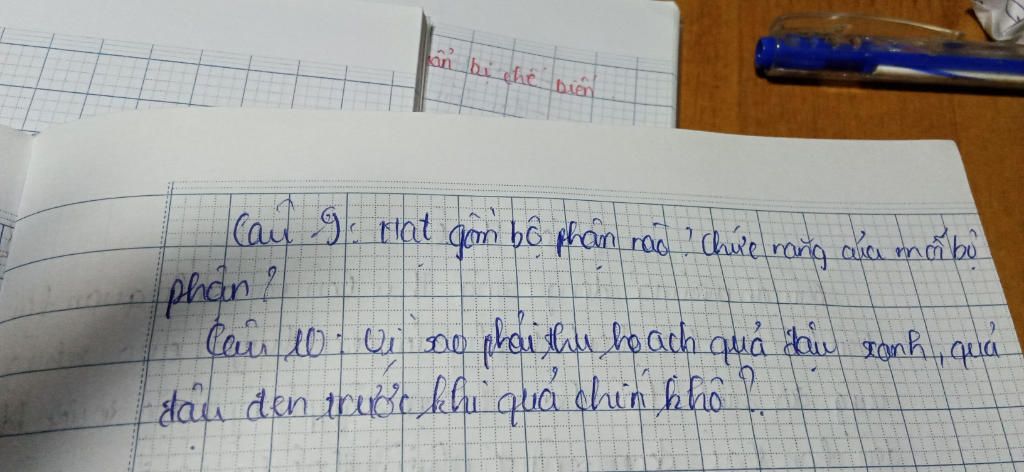 ẩn bị chế biến
Câu 9: Hạt gồm bộ phận nào, chức năng của mỗi bộ
phận?
Câu 10: Vì sao phải thu hoạch quả đậu xanh, quả
đậu đen trước khi quả chín khô?